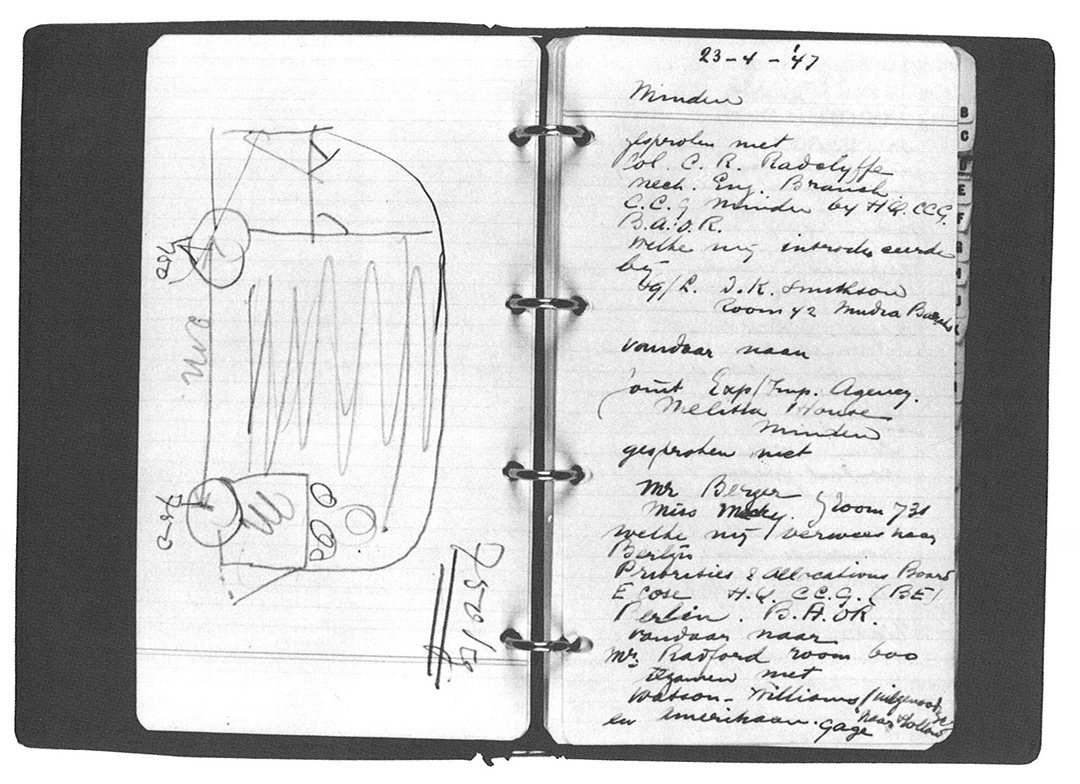 750
750
750 kg
23-4-'47
Minden
gesproken met
Col. C. R. Radclyffe
Mech. Eng. Branch.
C.C.G Minden by HQ. CCG.
B.A.O.R.
welke mij introduceerde
bij
J.K. Smithson
Room 42 Mudra Barracks
vandaar naar
Joint Exp/Imp. Agency.
Melitta House
Minden
gesproken met
Mr Berger
Miss Macky. Room 731
welke mij verwees naar
Berlijn
Priorities & Allocations Board
H.Q. C.C.G. (BE)
Berlin. B.A.O.R.
vandaar naar
Mr. Radford room 600
tezamen met
Watson-Williams
naar Holland
en Amerikaan. Gage
B
C
D
E
F
G
H
I